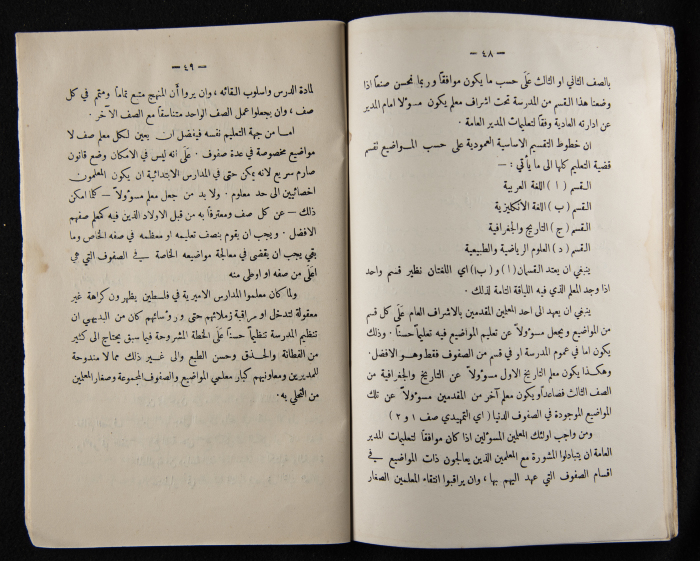 — ٤٨ —
بالصف الثاني او الثالث عَلَى حسب ما يكون موافقاً وربما يحسن صنعاً اذا
وضعنا هذا القسم من المدرسة تحت اشراف معلم يكون مسوولا امام المدير
عن ادارته العادية وفقاً لتعليمات المدير العامة .
ان خطوط التقسيم الاساسية العمودية على حسب المواضيع نقسم
قضية التعليم كلها الى ما يأتي : —
القسم ( ا ) اللغة العربية
القسم ( ب ) اللغة الانكليزية
القسم ( ج ) التاريخ والجغرافية
القسم ( د ) العلوم الرياضية والطبيعية
ينبغي ان يعتد القسمان ( ا ) و ( ب ) اي اللغتان نظير قسم واحد
اذا وجد المعلم الذي فيه اللياقة التامة لذلك .
ينبغي ان يعهد الى احد المعلمين المقدمين بالاشراف العام عَلَى كل قسم
من المواضيع ويجعل مسوولاً عن تعليم المواضيع فيه تعليماً حسناً . وذلك
يكون اما في عموم المدرسة او في قسم من الصفوف فقط وهو الافضل .
وهكذا يكون معلم التاريخ الاول مسوولاً عن التاريخ والجغرافية من
الصف الثالث فصاعداً ويكون معلم آخر من المقدمين مسوولاً عن تلك
المواضيع الموجودة في الصفوف الدنيا ( اي التمهيدي صف ١ و ٢ )
ومن واجب اولئك المعلمين المسوولين اذا كان موافقاً لتعليمات المدير
العامة ان يتبادلوا المشورة مع المعلمين الذين يعالجون ذات المواضيع في
اقسام الصفوف التي عهد اليهم بها ، وان يراقبوا انتقاء المعلمين الصغار
— ٤٩ —
لمادة الدرس واسلوب القائه ، وان يروا أن المنهج متبع تماماً ومتمم في كل
صف ، وان يجعلوا عمل الصف الواحد متناسقاً مع الصف الآخر .
اما من جهة التعليم نفسه فيفضل ان يعين لكل معلم صف لا
مواضيع مخصوصة في عدة صفوف . عَلَى انه ليس في الامكان وضع قانون
صارم سريع لانه يمكن حتى في المدارس الابتدائية ان يكون المعلمون
اخصائيين الى حد معلوم . ولا بد من جعل معلم مسوولاً — كلما امكن
ذلك — عن كل صف ومعترفاً به من قبل الاولاد الذين فيه كمعلم صفهم
الافضل . ويجب ان يقوم بنصف تعليمه او معظمه في صفه الخاص وما
بقي يجب ان يقضى في معالجة مواضيعه الخاصة في الصفوف التي هي
اعلى من صفه او اوطى منه
ولما كان معلموا المدارس الاميرية في فلسطين يظهرون كراهة غير
معقولة لتدخل او مراقبة زملائهم حتى ورؤسائهم كان من البديهي ان
تنظيم المدرسة تنظيماً حسناً عَلَى الخطة المشروحة فيما سبق يحتاج الى كثير
من الفطانة والحذق وحسن الطبع والى غير ذلك مما لا مندوحة
للمديرين ومعاونيهم كبار معلمي المواضيع والصفوف المجموعة وصغار المعلمين
من التحلي به .